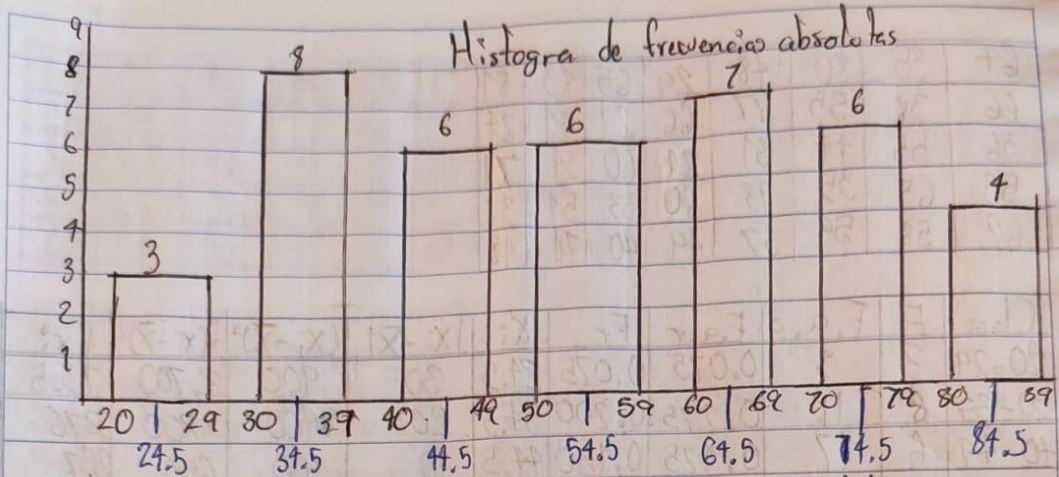 Histogra de frecuencias absolutas
9
8
7
6
5
4
3
2
1
3
8
6
6
7
6
4
20 29 30 39 40 49 50 59 60 69 70 79 80 89
24.5 34.5 44.5 54.5 64.5 74.5 84.5